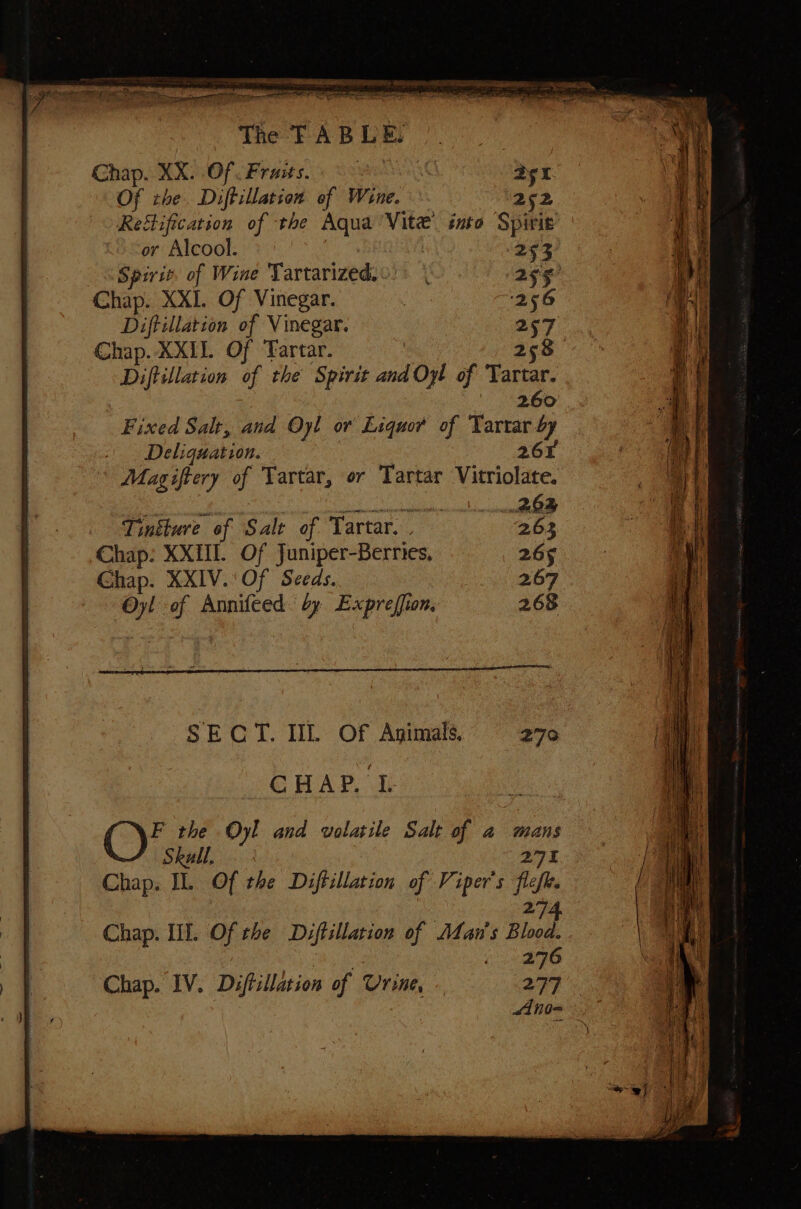 The TABLE.
Chap. XX. Of Fruits. 251
Of the Diſtillation of Wine. 252
Rectification of the Aqua Vitæ into Spirit
or Alcool. 253
Spirit of Wine Tartarized. 255
Chap. XXI. Of Vinegar. 256
Diſtillation of Vinegar. 257
Chap. XXII. Of Tartar. 258
Diſtillation of the Spirit and Oyl of Tartar.
260
Fixed Salt, and Oyl or Liquor of Tartar by
Deliquation. 261
Magiſtery of Tartar, or Tartar Vitriolate.
262
Tincture of Salt of Tartar. 263
Chap. XXIII. Of Juniper-Berries. 265
Chap. XXIV. Of Seeds. 267
Oyl of Anniſeed by Expreſſion. 268
SECT. III. Of Animals. 270
CHAP. I.
OF the Oyl and volatile Salt of a mans
Skull. 271
Chap. II. Of the Diſtillation of Viper's fleſh.
274
Chap. III. Of the Diſtillation of Man's Blood.
276
Chap. IV. Diſtillation of Urine, 277
Ano-